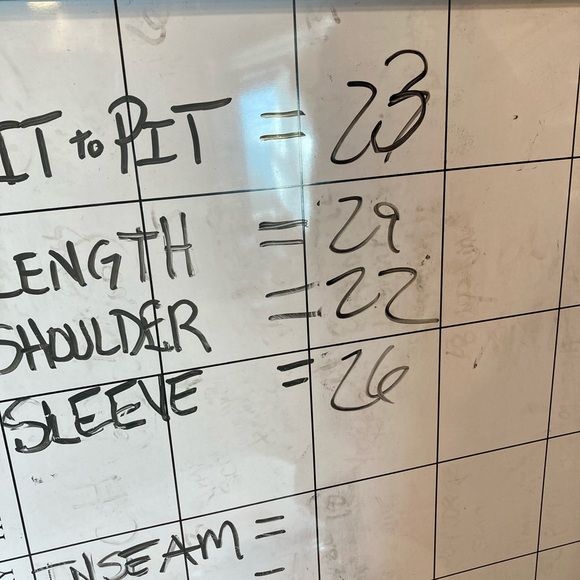 IT to PIT = 23
LENGTH = 29
SHOULDER = 22
SLEEVE = 26
INSEAM =